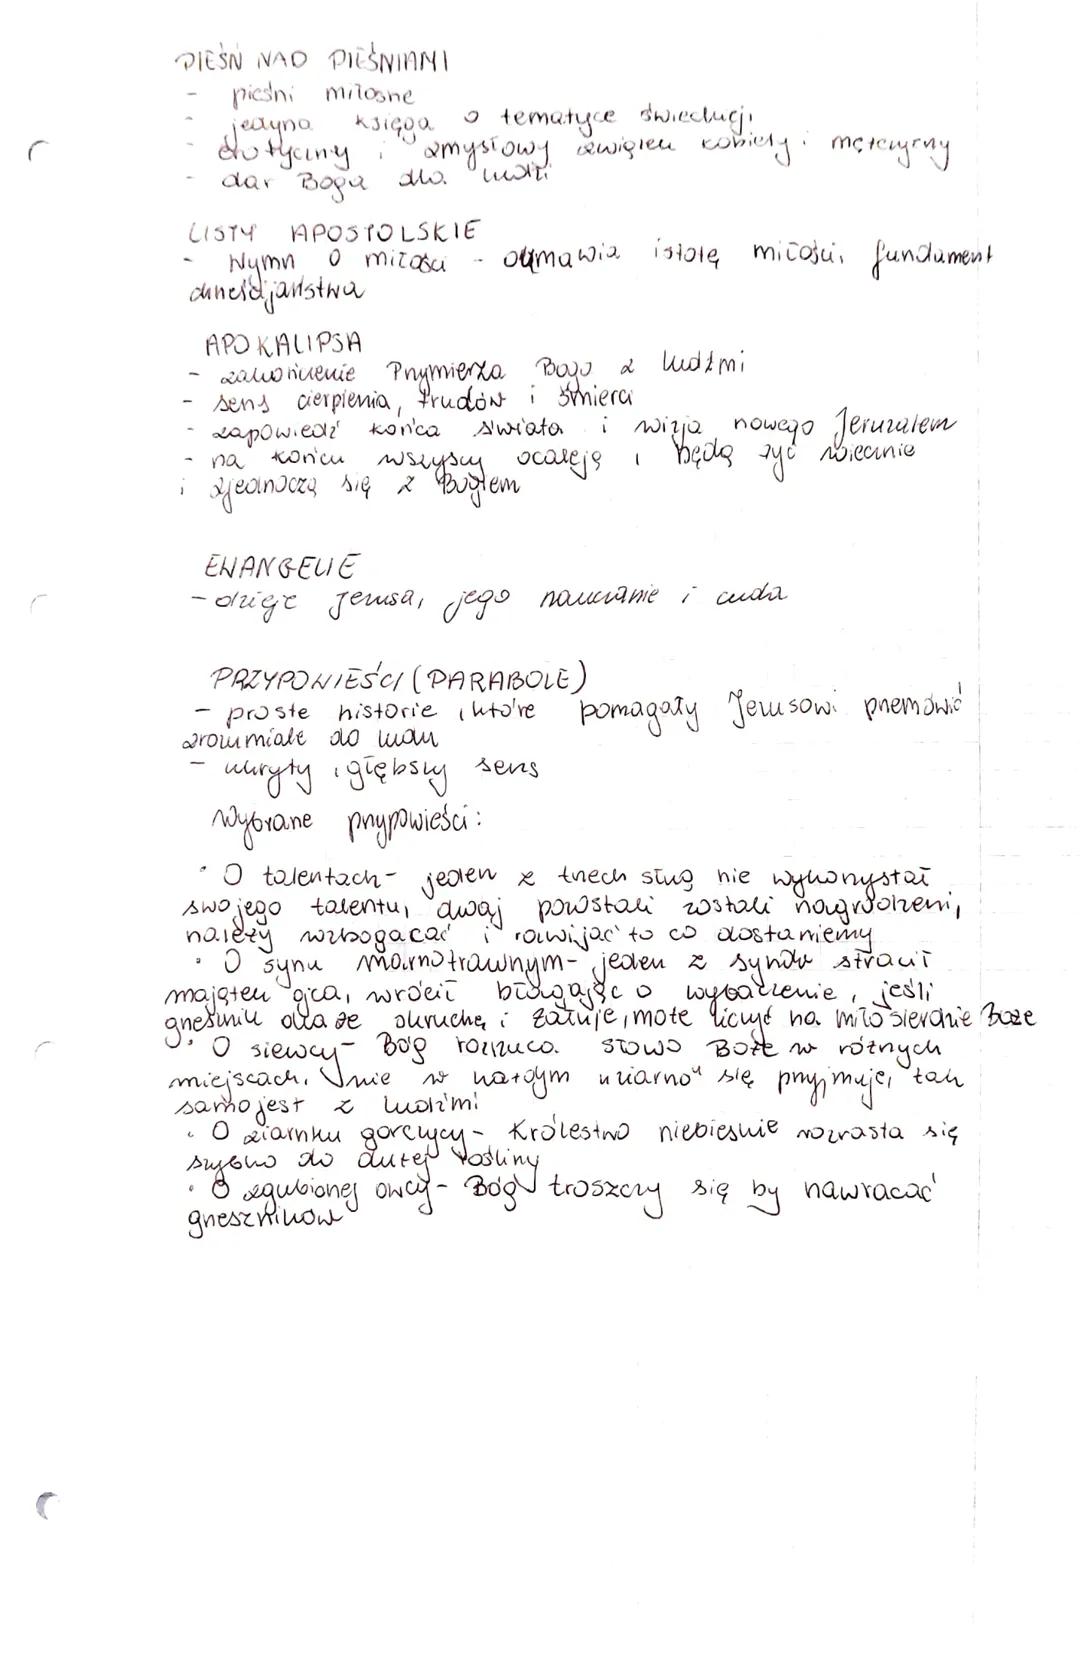 PIEŚŃ NAD PIEŚNIAMI
- pieśni miłosne
- jedyna księga o tematyce świeckiej
- erotyczny i zmysłowy związek kobiety i mężczyzny
- dar Boga dla ludzi
LISTY APOSTOLSKIE
- Hymn o miłości - odmawia istotę miłości, fundament
chrześcijaństwa
APOKALIPSA
- zakończenie Przymierza Boga z ludźmi
- sens cierpienia, trudów i śmierci
- zapowiedź końca świata i wizja nowego Jeruzalem
- na końcu wszyscy ocaleją i będą żyć wiecznie
i zjednoczą się z Bogiem
EWANGELIE
- dzieje Jezusa, jego nauczanie i cuda
PRZYPOWIEŚCI (PARABOLE)
- proste historie, które pomagały Jezusowi przemówić
zrozumiale do ludu
- ukryty, głębszy sens
Wybrane przypowieści:
• O talentach - jeden z trzech sług nie wykorzystał
swojego talentu, dwaj pozostali zostali nagrodzeni,
należy wzbogacać i rozwijać to co dostaniemy
• O synu marnotrawnym - jeden z synów stracił
majątek ojca, wrócił błagając o wybaczenie, jeśli
grzesznik okaże skruchę i żałuje, może liczyć na miłosierdzie Boże
• O siewcy - Bóg rozrzuca słowo Boże w różnych
miejscach. I nie w każdym "ziarno" się przyjmuje, tak
samo jest z ludźmi
• O ziarnku gorczycy - Królestwo niebieskie rozrasta się
szybko do dużej rośliny
• O zgubionej owcy - Bóg troszczy się by nawracać
grzeszników